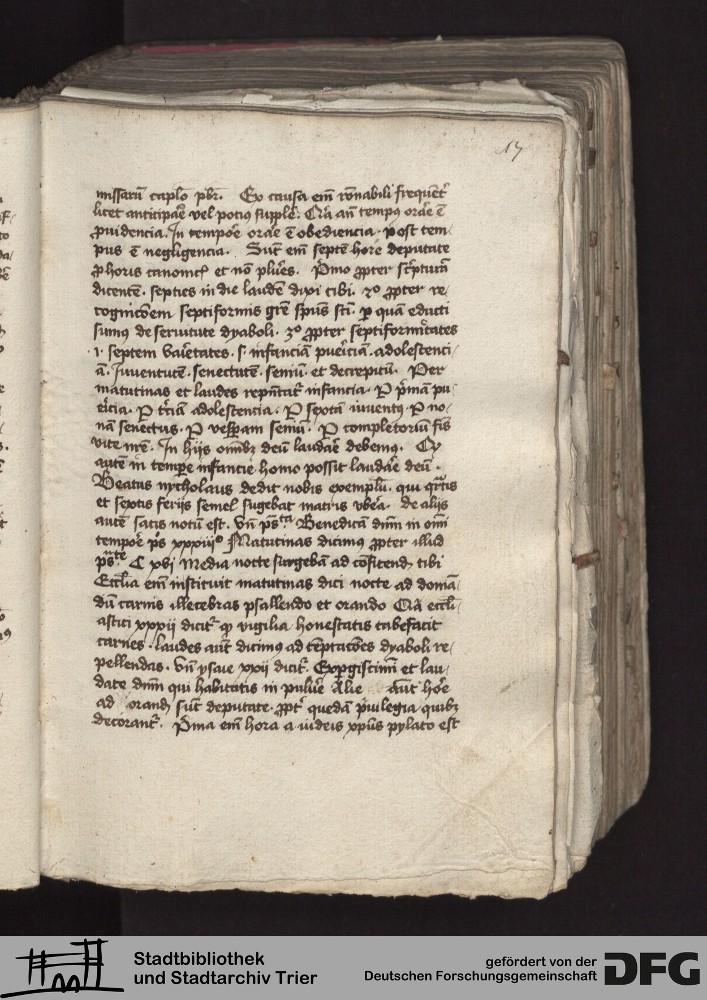 17
missarū caplo pbr. Ex causa em̄ rōnabili frequēt
licet anticipare vel potius supplē. Q̄a an̄ tempus orāe ē
ꝓuidencia. In tempore orāe ē obediencia. post tem-
pus ē negligencia. Sūt em̄ septē hore deputate
ꝓ horis canonic et nō plures. Pͥmo ꝓpter scripturā
dicentē. septies in die laudē dixi tibi. 2o ꝓpter re-
cognicōem septiformis grē spūs sti. ꝑ quā educti
sumus de seruitute dyaboli. 3o ꝓpter septiformitates
.i. septem varietates. s. infanciā puericiā. adolescenci-
ā. Juuentutē. senectutē. seniū. et decrepitū. Per
matutinas et laudes repn̄tatr infancia. P pͥmā pu-
ericia. P terciā adolescencia. P sextā iuuentus. P no-
nā senectus. P vesperam seniū. P completoriū finis
vite nrē. In hijs omībꝫ deū laudare debemus.
autē in tempore infancie homo possit laudare deū.
Beatus nycholaus dedit nobis exemplū. qui qrtis
et sextis ferijs semel sugebat matris vbera. de alijs
autē satis notū est. Vn̄ psta. Benedicā dnm in omi
tempore ps xxxiiio Matutinas dicimus ꝓpter illud
pste C xvi Media nocte surgebā ad cōfitendꝫ tibi
Eccīia em̄ instituit matutinas dici nocte ad doman-
dū carnis illecebras psallendo et orando Q̄a eccli-
astici xxxii dicitr ꝙ vigilia honestatis tabefacit
carnes. laudes aut dicimus ad tēptacōes dyaboli re-
pellendas. Vn̄ ysaie xxii dicitr. Expgiscimī et lau-
date dnm qui habitatis in puluere Alie aūt hore
ad orandꝫ sūt deputate. ꝓptr quedā pͥuilegia quibꝫ
decorantr. Pͥma em̄ hora a iudeis xpūs pylato est
Stadtbibliothek
und Stadtarchiv Trier
gefördert von der
Deutschen Forschungsgemeinschaft
DFG